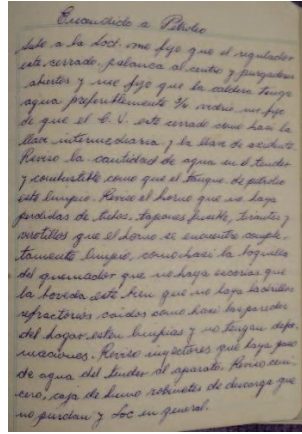 Encendido a Petroleo
Subo a la Loct. me fijo que el regulador
este cerrado, palanca al centro y purgadores
abiertos y me fijo que la caldera tenga
agua preferentemente 3/4 vidrio, me fijo
de que el C. V. este cerrado como hasi la
llave intermediaria y la llave de asiento.
Reviso la cantidad de agua en el tender
y combustible como que el tanque de petroleo
este limpio. Reviso el horno que no haya
perdidas de tubos, tapones fusible, tirantes y
virotillos que el horno se encuentre comple-
tamente limpio, como hasi la boquilla
del quemador que no haya escorias que
la boveda este bien que no haya ladrillos
refractarios caidos como hasi las paredes
del hogar esten limpias y no tengan defor
maciones. Reviso inyectores que haya paso
de agua del tender al aparato. Reviso ceni-
cero, caja de humo robinetes de descarga que
no pierdan y Loc en general.